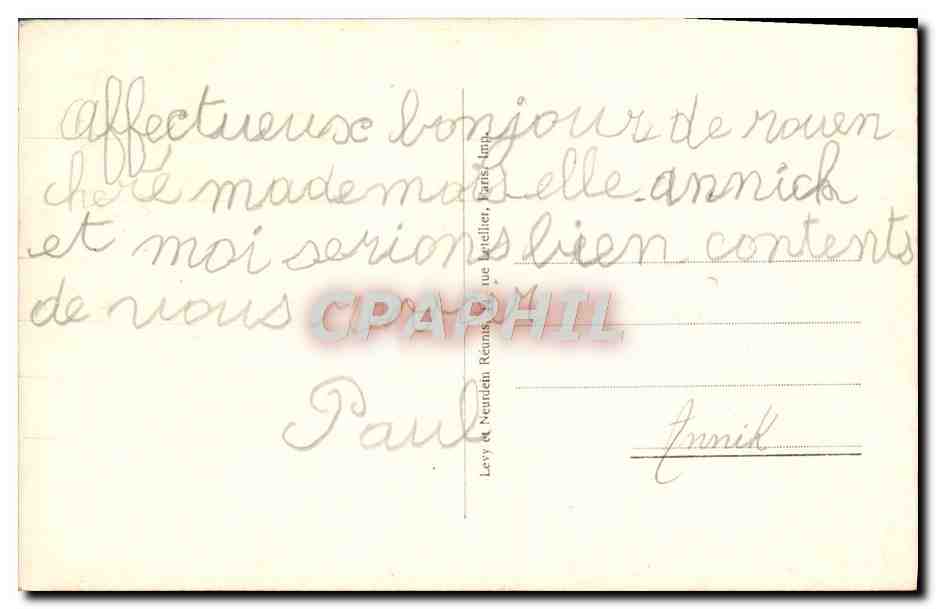 affectueux bonjour de rouen
cheré mademoiselle annick
et moi serions bien contents
de vous
Paul
Annik
Levy et Neurdein Réunis, rue Letellier, Paris, Imp.
CPAPHIL